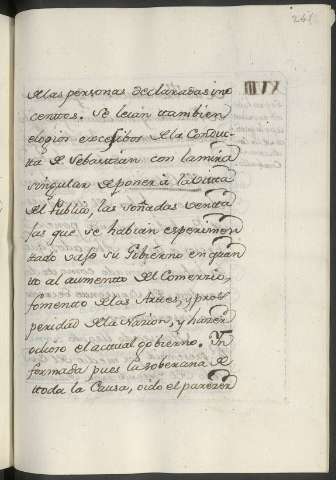 241
XVII
de las personas declaradas ino
centes. Se leian tambien
elogios excesibos de la Conduc-
ta de Sebastian con la mira
singular de poner à la vista
del Publico, las soñadas venta
jas que se habian esperimen
tado vajo su Gobierno en quan
to al aumento del Comercio,
fomento de las Artes, y pros
peridad de la Nacion, y hacer
odioso el actual gobierno. In
formada pues la soberana de
toda la Causa, oido el parecer